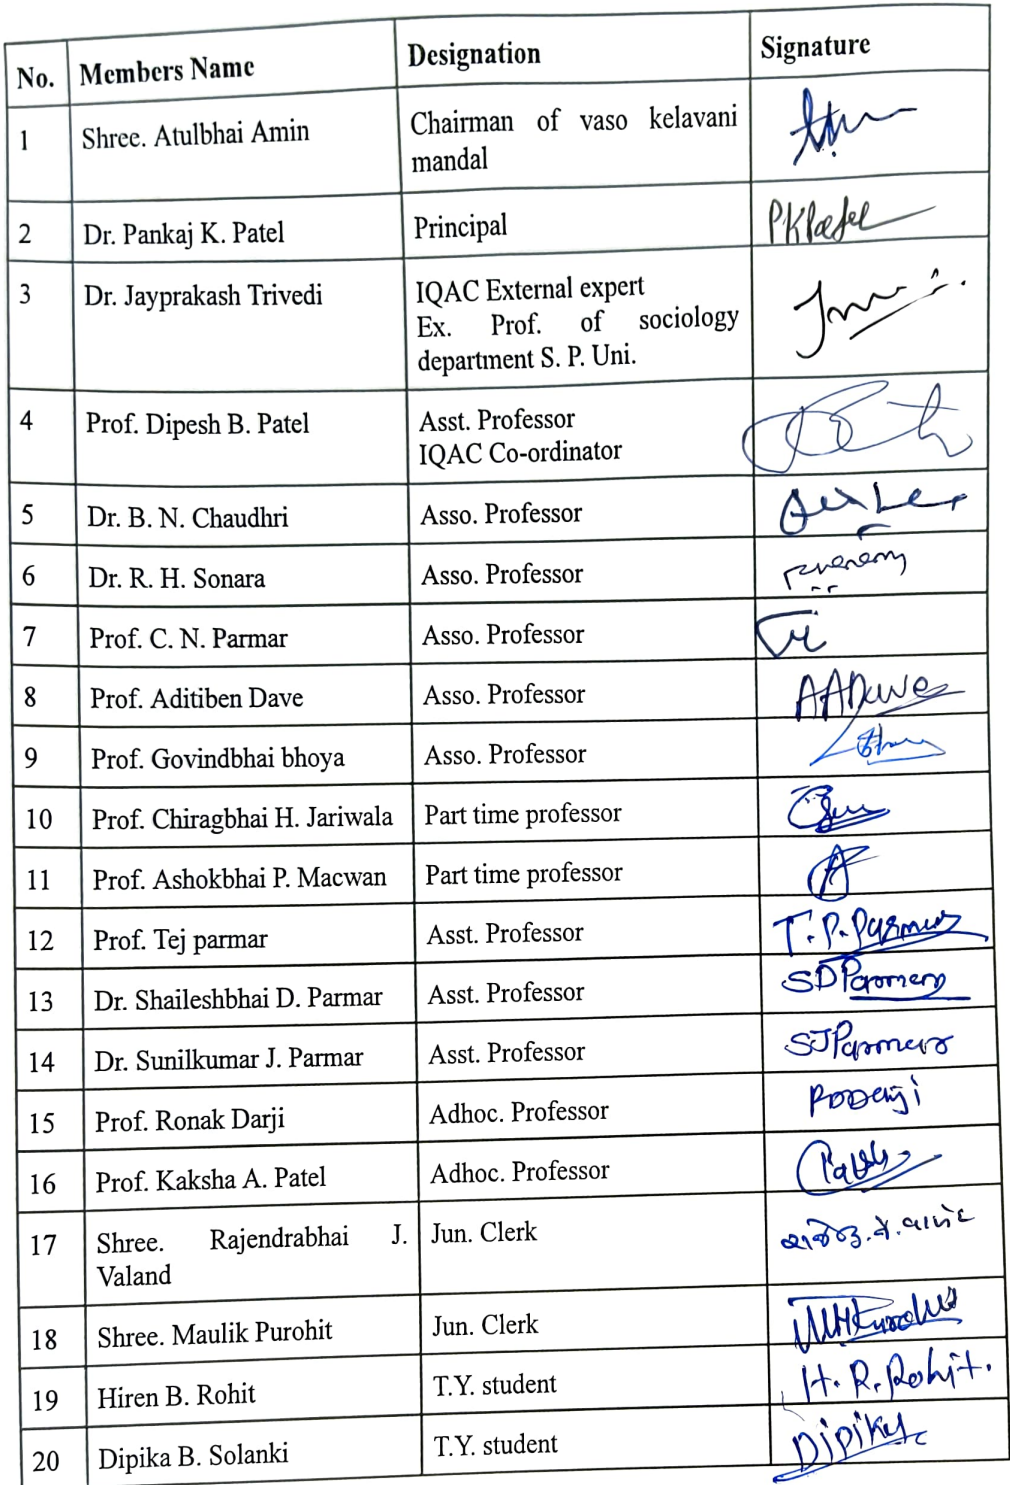 No. Members Name Designation Signature
1 Shree. Atulbhai Amin Chairman of vaso kelavani
mandal
2 Dr. Pankaj K. Patel Principal PKPatel
3 Dr. Jayprakash Trivedi IQAC External expert
Ex. Prof. of sociology
department S. P. Uni.
4 Prof. Dipesh B. Patel Asst. Professor
IQAC Co-ordinator
5 Dr. B. N. Chaudhri Asso. Professor
6 Dr. R. H. Sonara Asso. Professor
7 Prof. C. N. Parmar Asso. Professor
8 Prof. Aditiben Dave Asso. Professor AADave
9 Prof. Govindbhai bhoya Asso. Professor
10 Prof. Chiragbhai H. Jariwala Part time professor
11 Prof. Ashokbhai P. Macwan Part time professor
12 Prof. Tej parmar Asst. Professor T.P.Parmar
13 Dr. Shaileshbhai D. Parmar Asst. Professor SDParmar
14 Dr. Sunilkumar J. Parmar Asst. Professor SJParmar
15 Prof. Ronak Darji Adhoc. Professor
16 Prof. Kaksha A. Patel Adhoc. Professor
17 Shree. Rajendrabhai J. Jun. Clerk
Valand
18 Shree. Maulik Purohit Jun. Clerk
19 Hiren B. Rohit T.Y. student H.R.Rohit.
20 Dipika B. Solanki T.Y. student Dipika